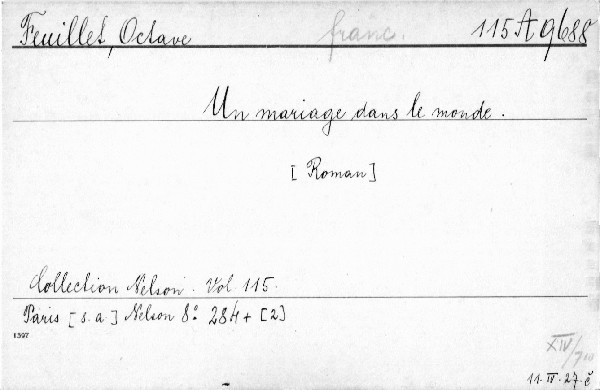 Feuillet, Octave franc. 115 A 9688
Un mariage dans le monde.
[Roman]
Collection Nelson. Vol 115.
Paris [s.a.] Nelson 8° 284 + [2]
1397
XIV/
11.IV.27.č